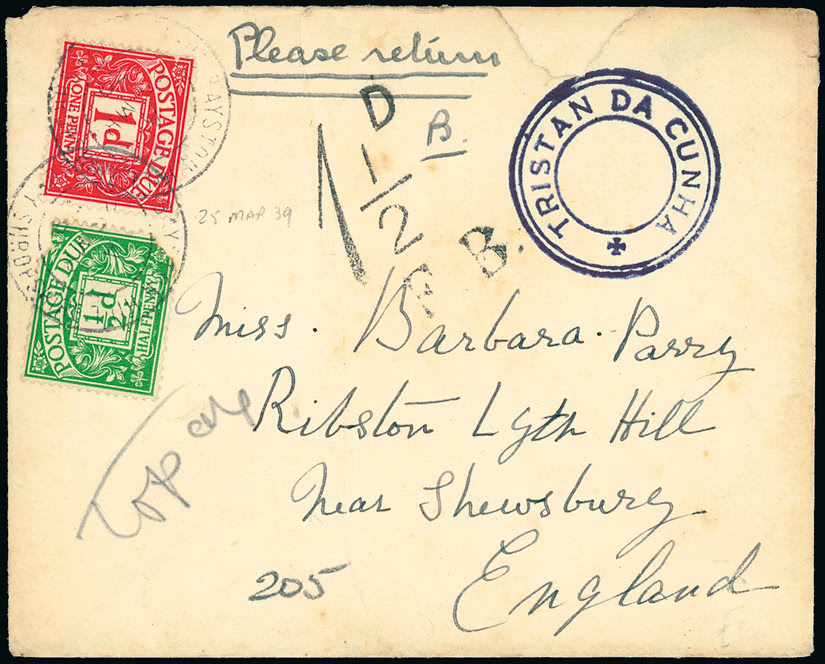 Please return
POSTAGE DUE
1d
ONE PENNY
D
1 1/2
B.
B.
TRISTAN DA CUNHA
25 MAR 39
POSTAGE DUE
½d
HALFPENNY
Miss. Barbara. Parry
Ribston Lyth Hill
Near Shewsbury
205
England